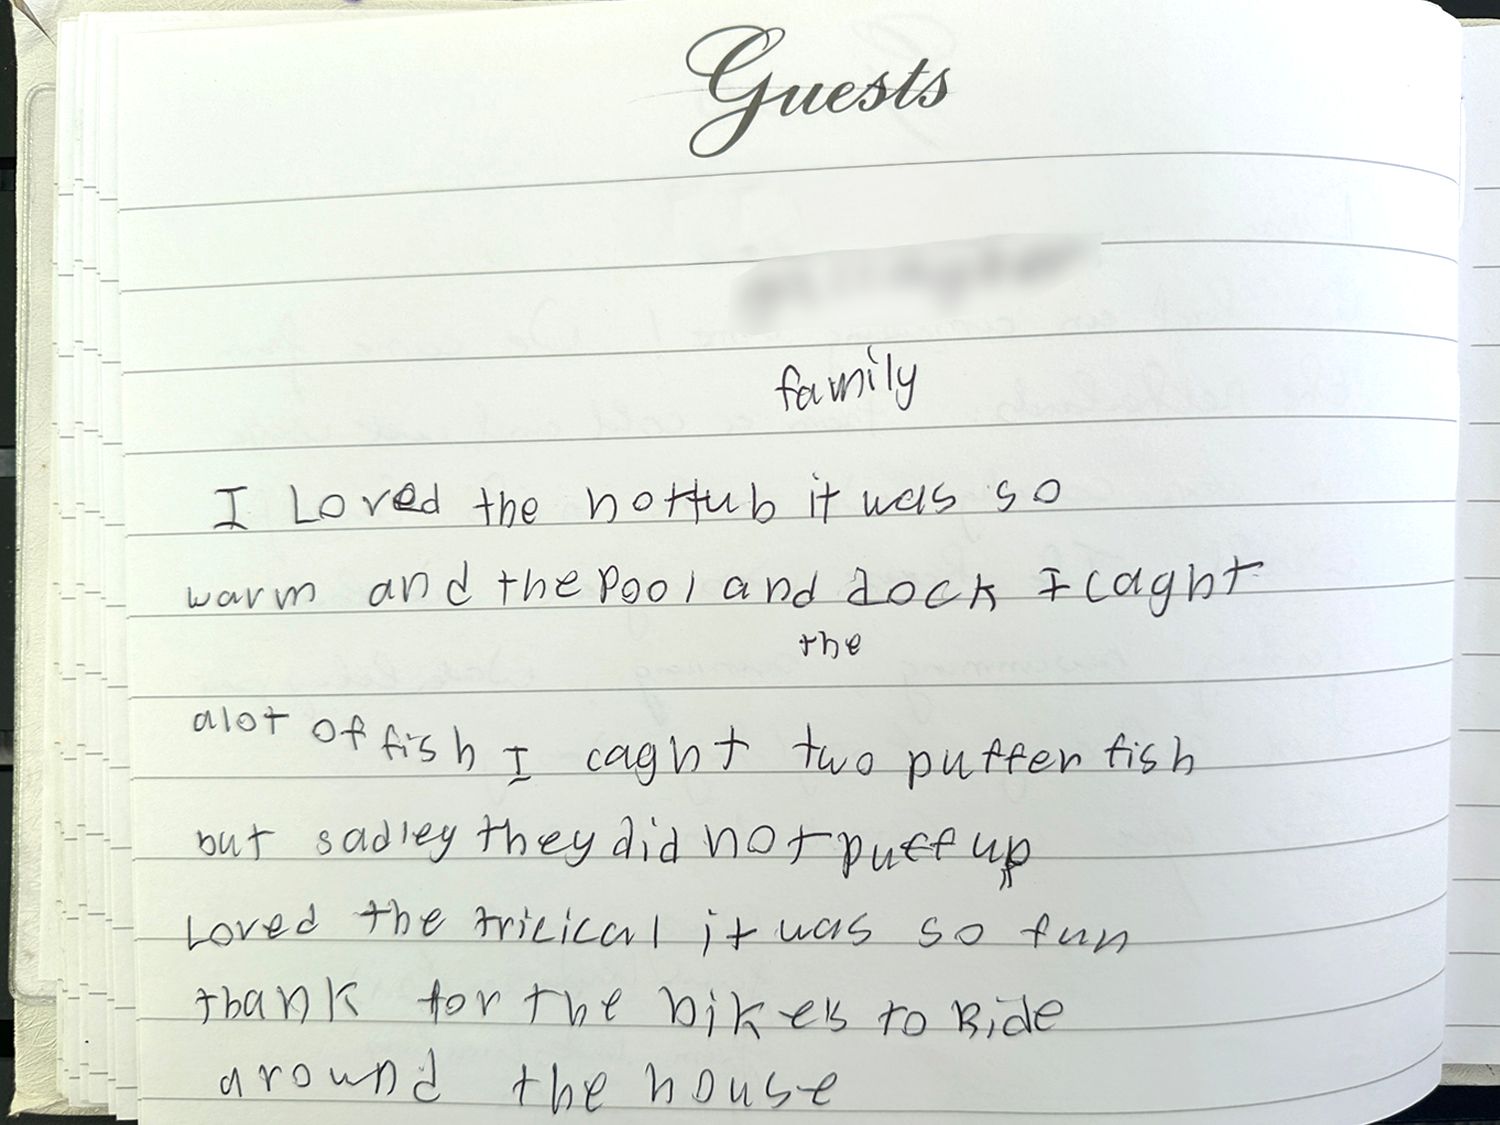 Guests
family
I Loved the hottub it was so
warm and the Pool and dock I caght
the
alot of fish I caght two puffer fish
but sadley they did not puff up
Loved the tricical it was so fun
thank for the bikes to Ride
around the house